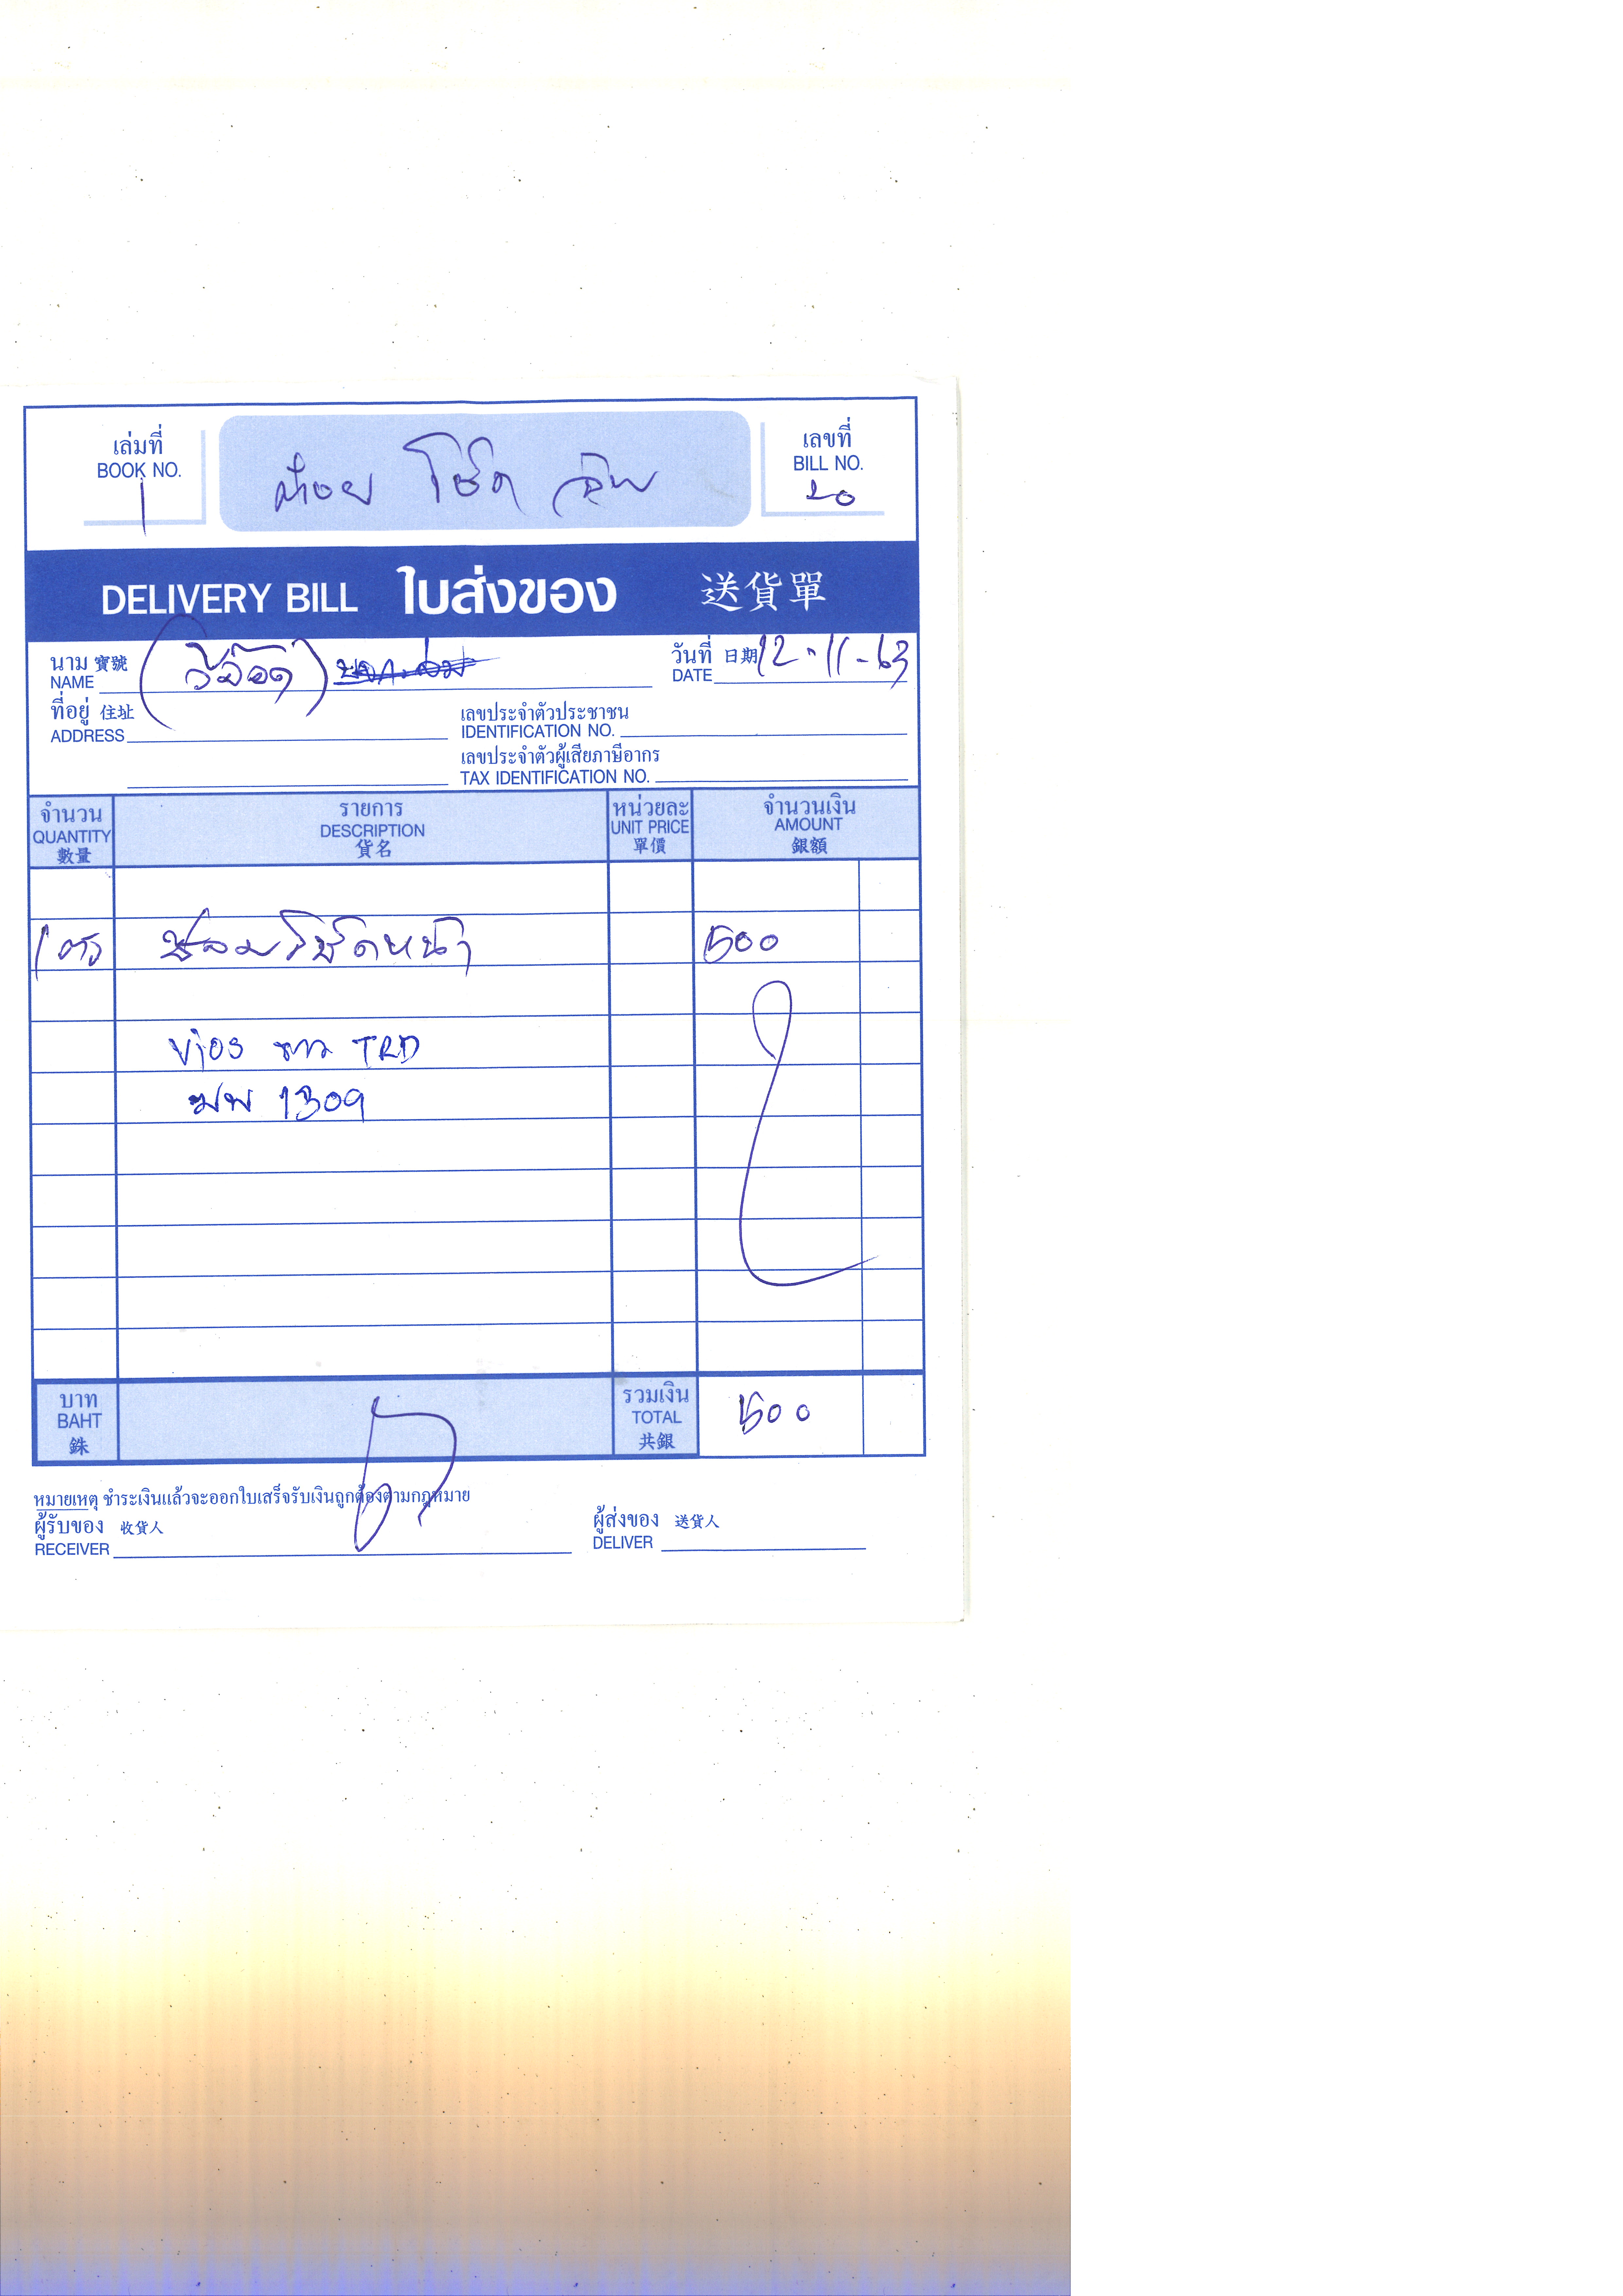 เล่มที่
BOOK NO.
1
ต้อย โช๊ค
เลขที่
BILL NO.
20
DELIVERY BILL ใบส่งของ 送貨單
นาม 寶號
NAME
วันที่ 日期 12-11-63
DATE
ที่อยู่ 住址
ADDRESS
เลขประจำตัวประชาชน
IDENTIFICATION NO.
เลขประจำตัวผู้เสียภาษีอากร
TAX IDENTIFICATION NO.
จำนวน รายการ หน่วยละ จำนวนเงิน
QUANTITY DESCRIPTION UNIT PRICE AMOUNT
數量 貨名 單價 銀額
1 ตัว ซ่อมโช๊คหน้า 500
Vios ขาว TRD
1309
บาท รวมเงิน
BAHT TOTAL 500
銖 共銀
หมายเหตุ ชำระเงินแล้วจะออกใบเสร็จรับเงินถูกต้องตามกฎหมาย
ผู้รับของ 收貨人 ผู้ส่งของ 送貨人
RECEIVER DELIVER